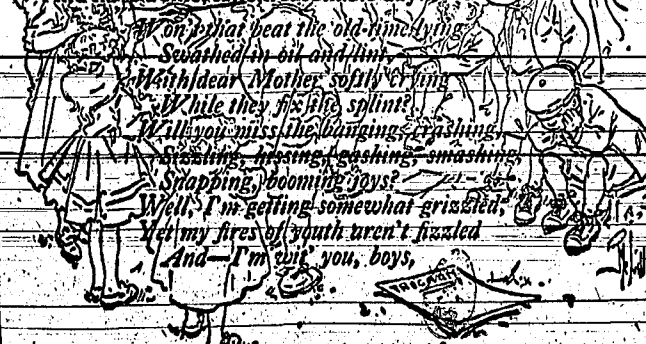 Won't that beat the old-time lying
Swathed in oil and lint,
With dear Mother softly crying
While they fix the splint?
Will you miss the bangings, crashing,
Sizzling, hissing, gashing, smashing,
Snapping, booming joys?
Well, I'm getting somewhat grizzled,
Yet my fires of youth aren't fizzled
And—I'm wit' you, boys,
PROGRAM